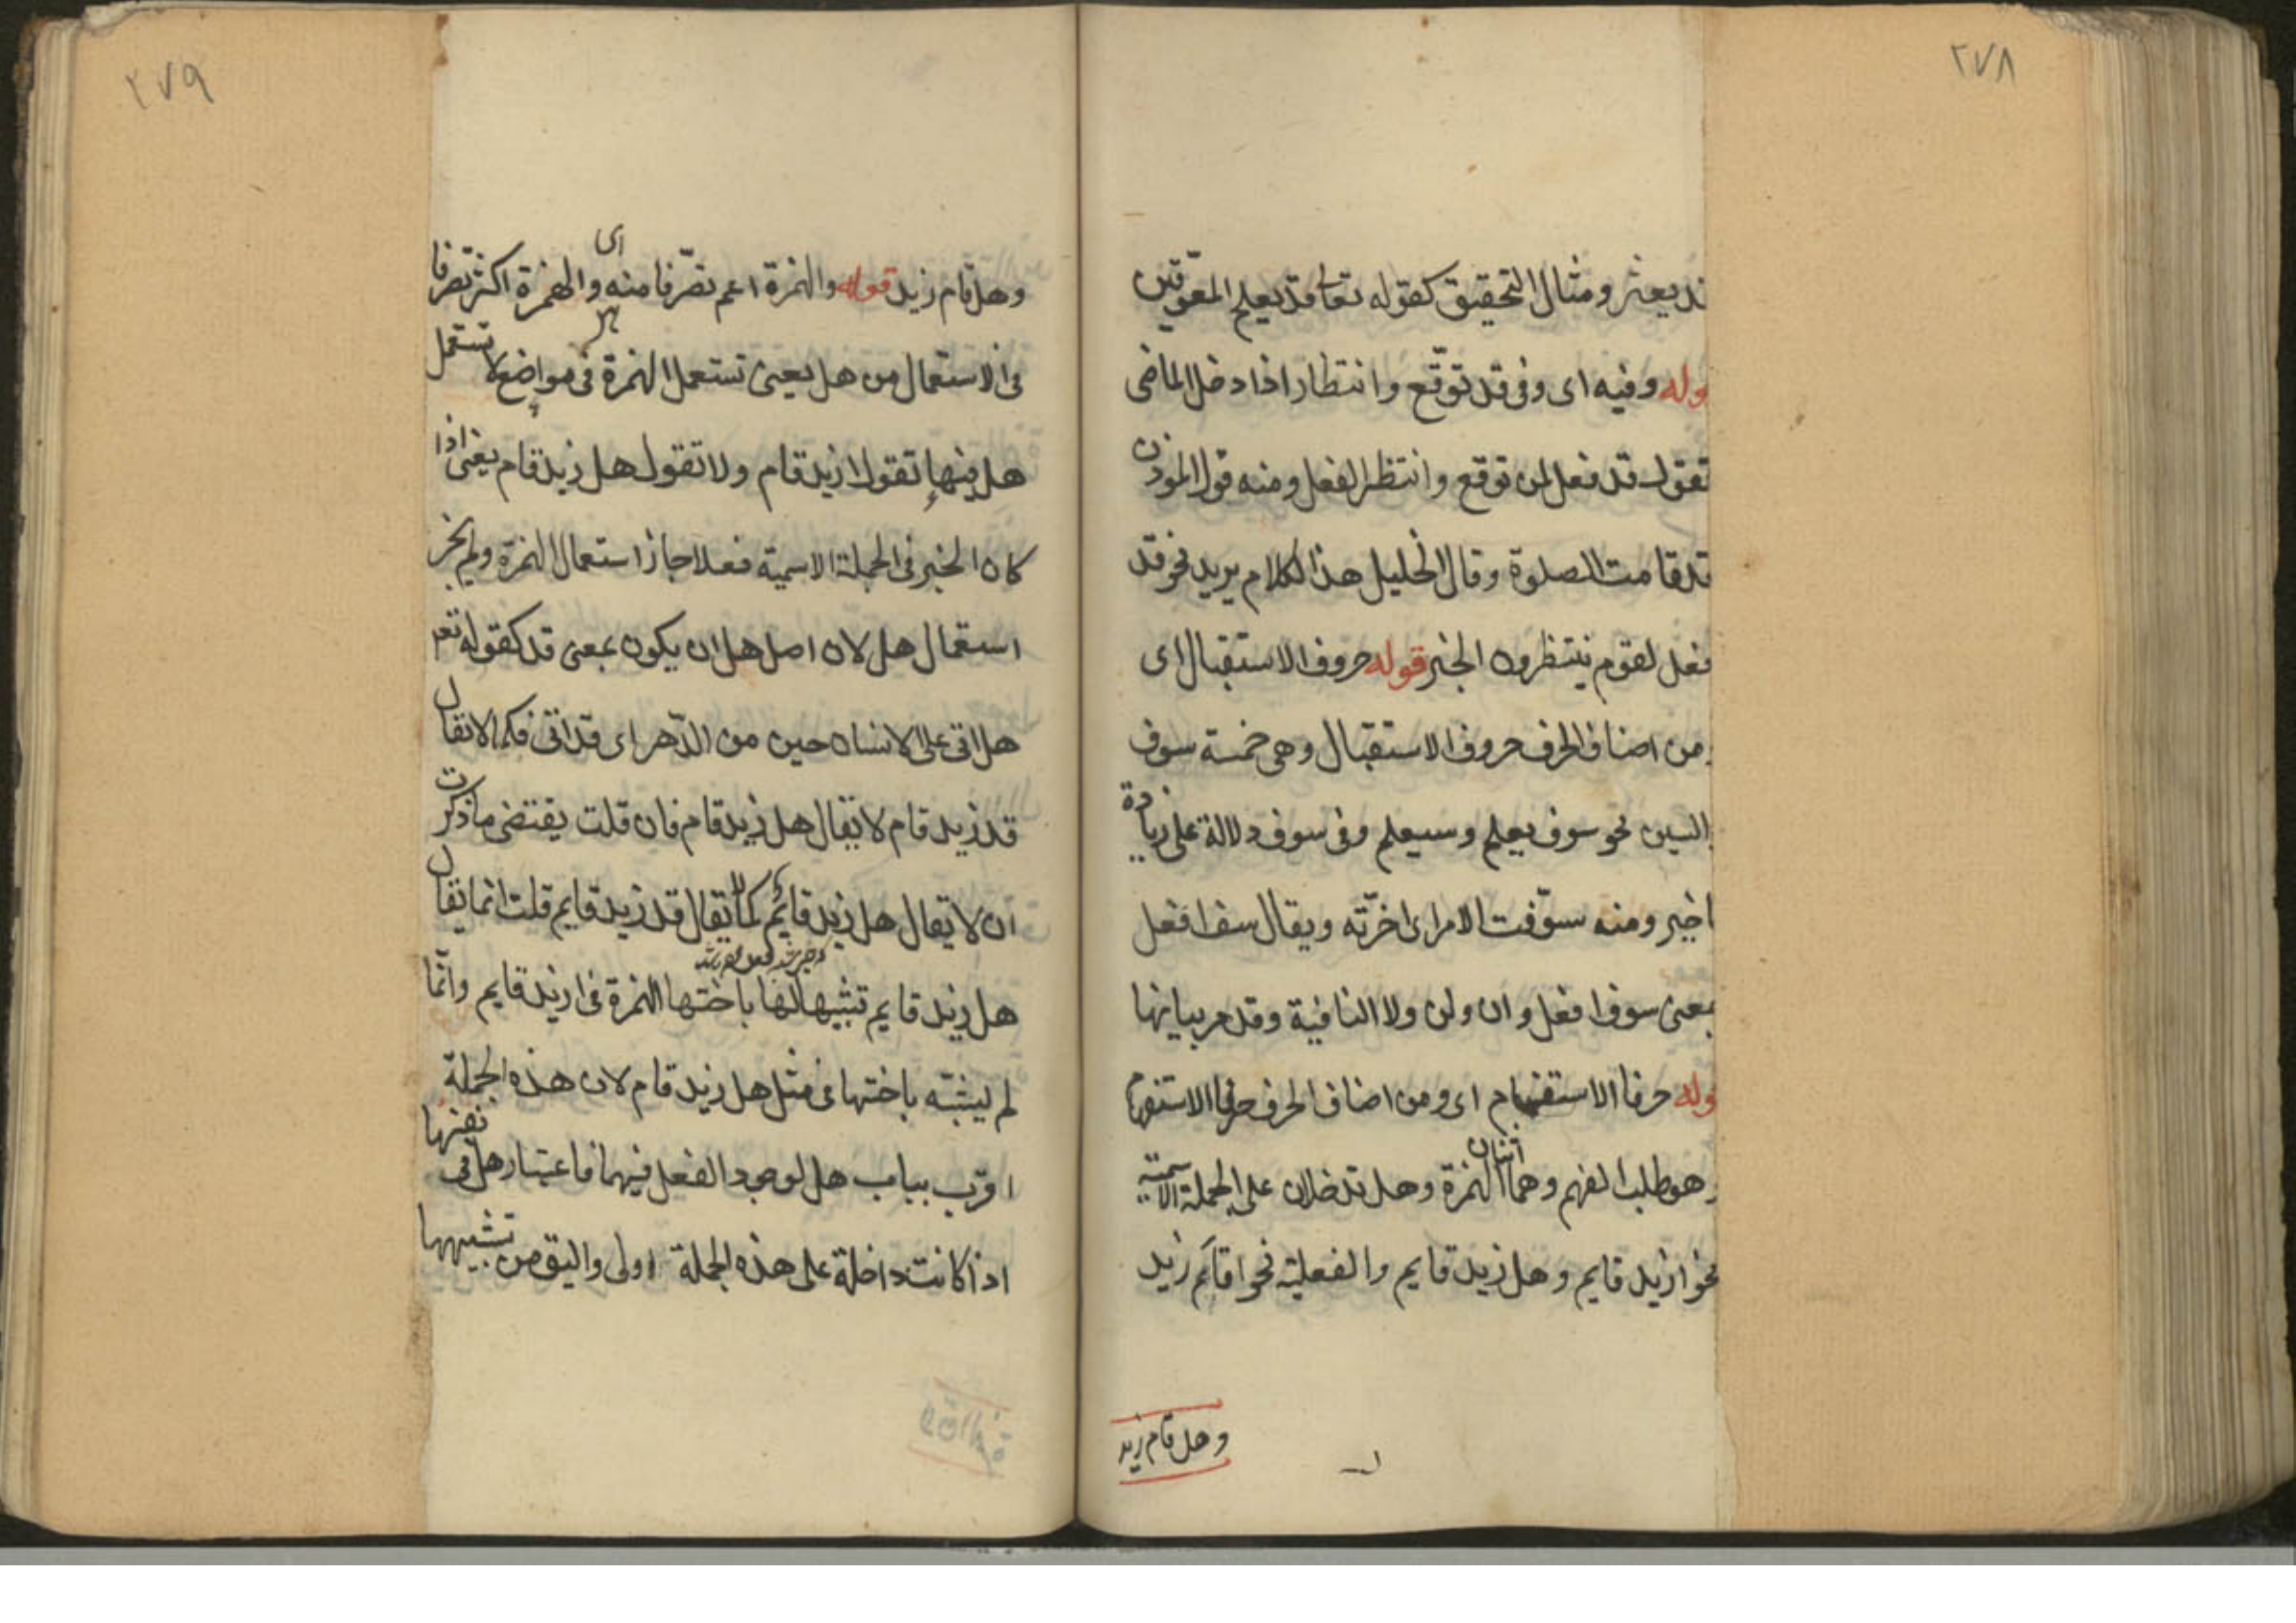 ٢٧٨
قد يعثر ومثال التحقيق كقوله تعالى قد يعلم المعوّقين
قوله وفيه اى وفى قد توقّع وانتظار اذا دخل الماضى
تقول قد فعل لمن توقع وانتظر الفعل ومنه قول المؤذن
قد قامت الصلوة وقال الخليل هذا الكلام يريد نحو قد
فعل لقوم ينتظرون الخبر قوله حروف الاستقبال اى
ومن اصناف الحرف حروف الاستقبال وهى خمسة سوف
والسين نحو سوف يعلم وسيعلم وفى سوف دلالة على زيادة
تاخير ومنه سوّفت الامر اى اخرّته ويقال سف افعل
بمعنى سوف افعل وان ولن ولا النافية وقد مر بيانها
قوله حرفا الاستفهام اى ومن اصناف الحرف حرفا الاستفهام
وهو طلب الفهم وهما اثنان الهمزة وهل تدخلان على الجملة الاسميّة
نحو ازيد قايم وهل زيد قايم والفعليّة نحو اقام زيد
وهل قام زيد
٢٧٩
وهل قام زيد قوله والهمزة اعم تصّرفا منه اى والهمزة اكثر تصرفا
فى الاستعمال من هل يعنى تستعمل الهمزة فى مواضع لا تستعمل
هل فيها تقول ازيد قام ولا تقول هل زيد قام يعنى اذا
كان الخبر فى الجملة الاسمية فعلا جاز استعمال الهمزة ولم يجز
استعمال هل لان اصل هل ان يكون بمعنى قد كقوله تعالى
هل اتى على الانسان حين من الدّهر اى قد اتى فكما لا يقال
قد زيد قام لا يقال هل زيد قام فان قلت يقتضى ما ذكرت
ان لا يقال هل زيد قائم كما لا يقال قد زيد قايم قلت انما يقال
هل زيد قايم تشبيها لها باختها الهمزة فى ازيد قايم وانّما
لم يشبّه باختها فى مثل هل زيد قام لان هذه الجملة
اقرب بباب هل لوجود الفعل فيها فاعتبار هل فى نفسها
اذا كانت داخلة على هذه الجملة اولى واليق من تشبيهها